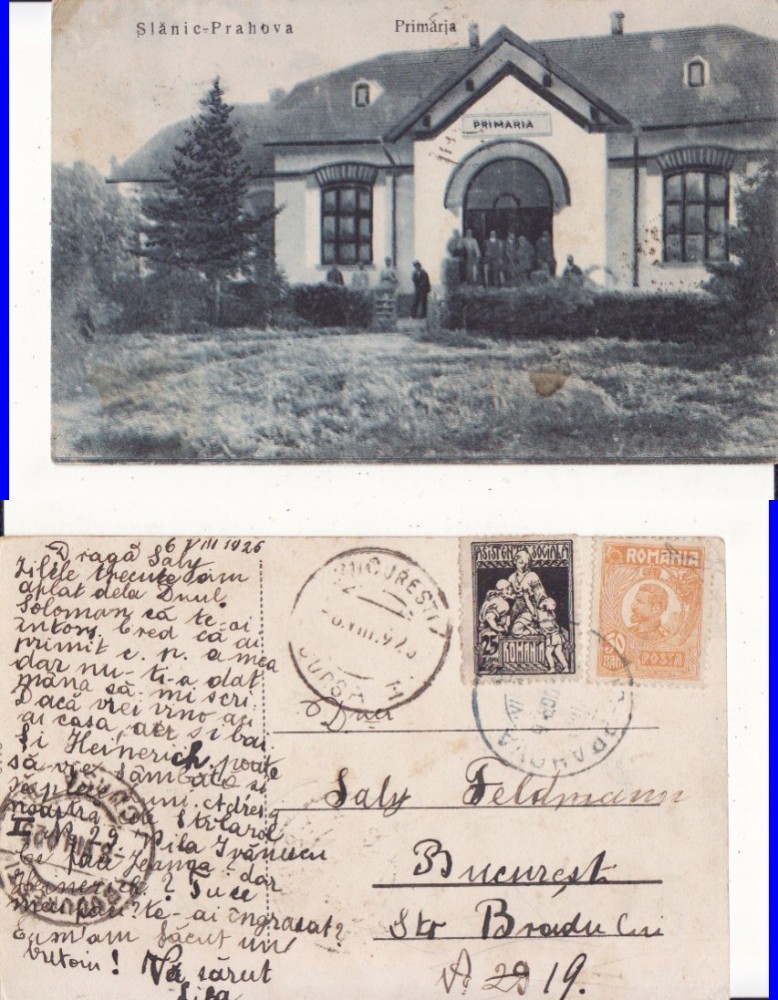 Slănic-Prahova
Primăria
PRIMARIA
6 VIII 1926
Dragă Saly
Zilele trecute am
aflat dela Dnul
Soloman că te-ai
intors. Cred că ai
primit c. p. a mea
dar nu-ti-a dat
mâna să-mi scri.
Dacă vrei vino
ai casa, aer si bai
Si Heinerich poate
să vie Sâmbătă si
să plece Luni. Adresa
noastra Str Carol
II No. 29. Vila Ivănescu
Ce face Jeanna? dar
Heinerich? Tu ce
mai faci? te-ai îngrasat?
Eu m'am făcut un
butoiu! Vă sărut
BUCURESTI
ASISTENTA SOCIALA
25
ROMANIA
ROMANIA
50 BANI
POSTA
PRAHOVA
Saly Feldmann
Bucuresti
Str Bradului
No 29 19.